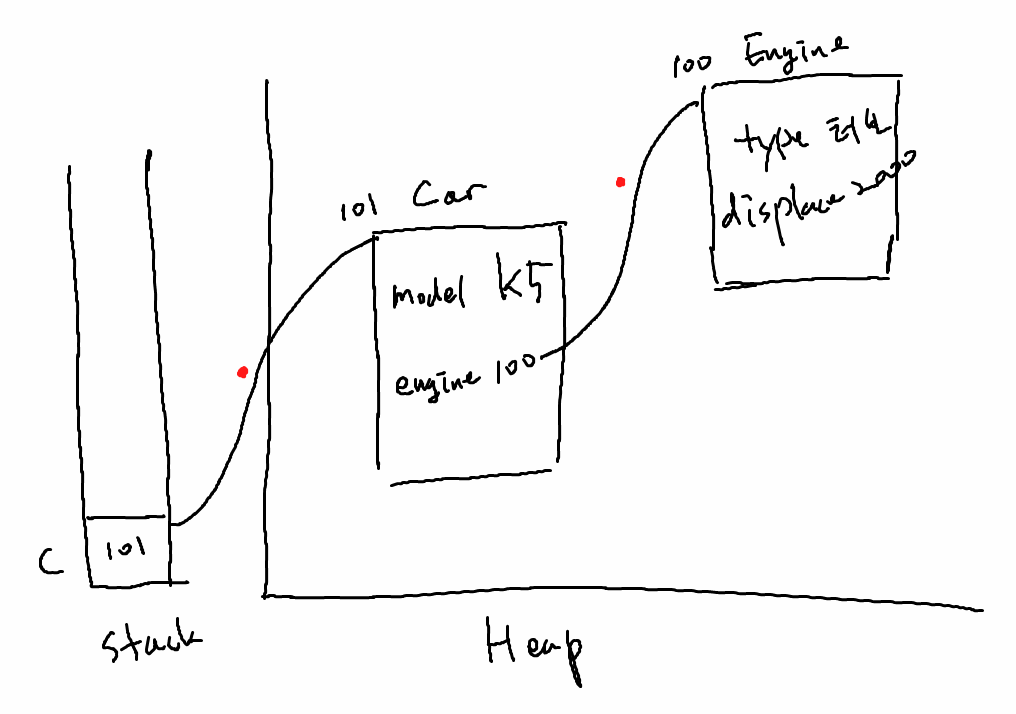 100 Engine
type 디젤
displace 2000
101 Car
model K5
engine 100
C 101
stack
Heap